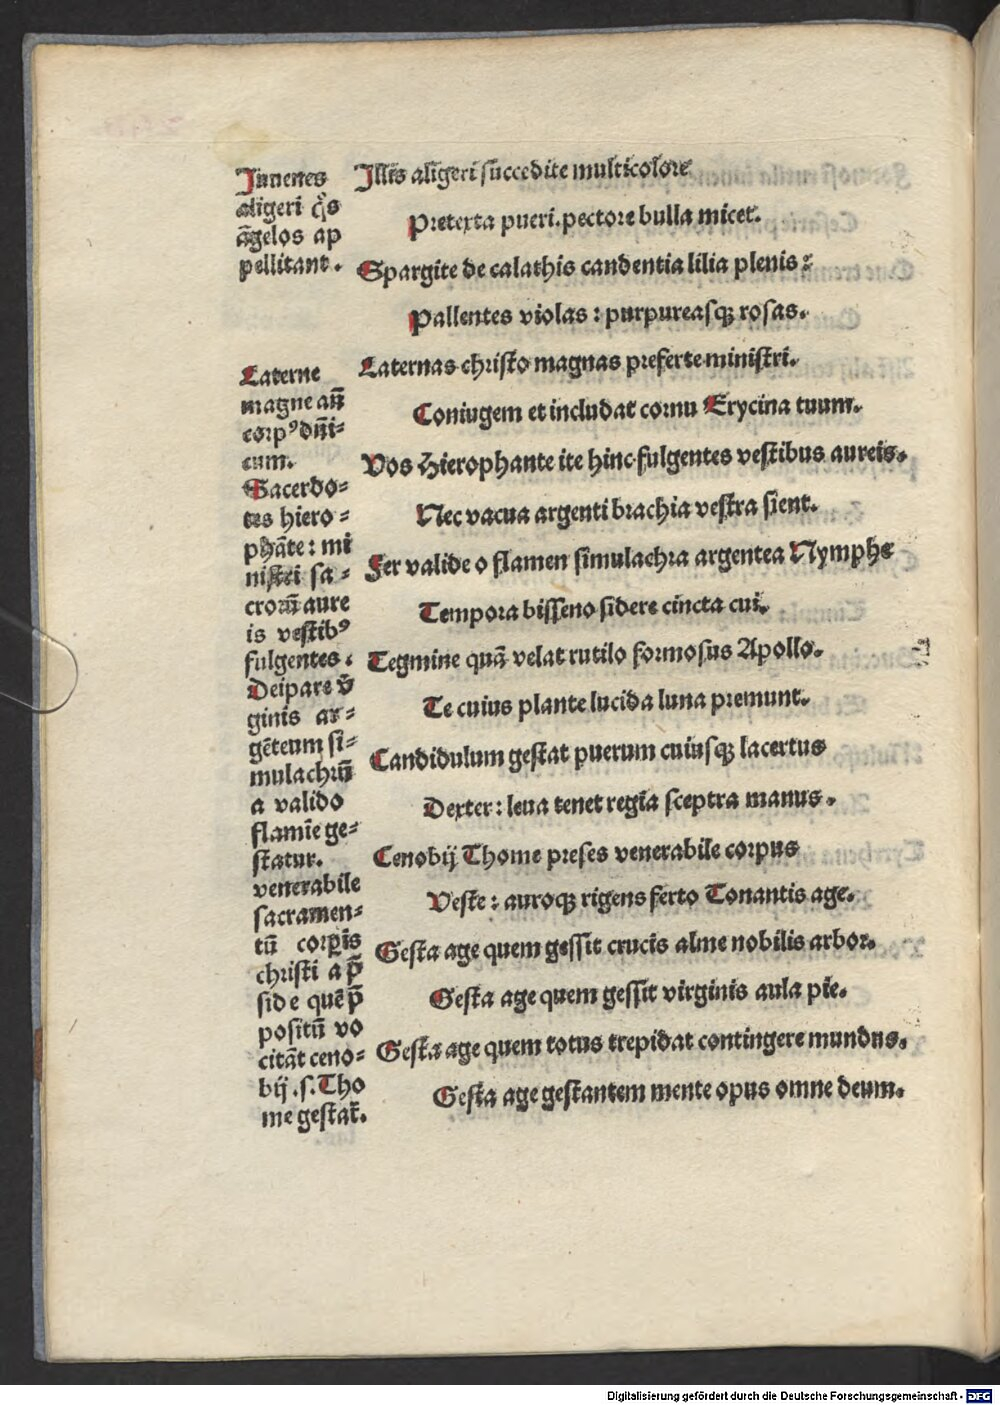 Iuuenes
aligeri q̄s
āgelos ap
pellitant.
Laterne
magne añ
corpꝰ dñi⸗
cum.
Sacerdo⸗
tes hiero⸗
phāte: mi
nistri sa⸗
croꝝ aure
is vestibꝰ
fulgentes.
Deipare v̄
ginis ar⸗
gēteum si⸗
mulachrū
a valido
flamīe ge⸗
statur.
venerabile
sacramen⸗
tū corꝑis
christi a p̄
side quē p̄
positū vo
citāt ceno⸗
bij .s. Tho
me gestat̄.
Illis aligeri succedite multicolore
Pretexta pueri. pectore bulla micet.
Spargite de calathis candentia lilia plenis:
Pallentes violas: purpureasqꝫ rosas.
Laternas christo magnas preferte ministri.
Coniugem et includat cornu Erycina tuum.
Vos Hierophante ite hinc fulgentes vestibus aureis.
Nec vacua argenti brachia vestra sient.
Fer valide o flamen simulachra argentea Nymphe
Tempora bisseno sidere cincta cui.
Tegmine quā velat rutilo formosus Apollo.
Te cuius plante lucida luna premunt.
Candidulum gestat puerum cuiusqꝫ lacertus
Dexter: leua tenet regia sceptra manus.
Cenobij Thome preses venerabile corpus
Veste: auroqꝫ rigens ferto Tonantis age.
Gesta age quem gessit crucis alme nobilis arbor.
Gesta age quem gessit virginis aula pie.
Gesta age quem totus trepidat contingere mundus.
Gesta age gestantem mente opus omne deum.
Digitalisierung gefördert durch die Deutsche Forschungsgemeinschaft - DFG